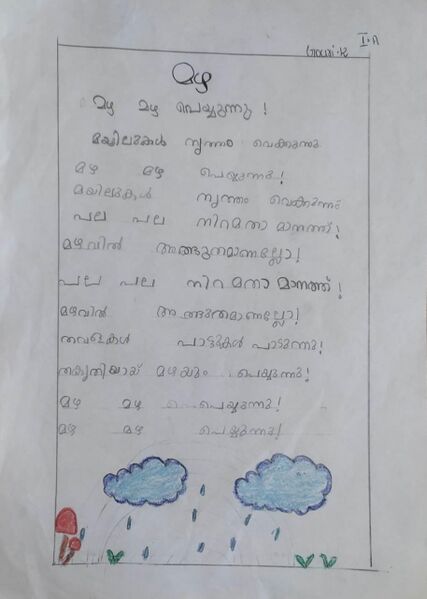 I.A
Gouri.k
മഴ
മഴ മഴ പെയ്യുന്നു !
മയിലുകൾ നൃത്തം വെക്കുന്നു
മഴ മഴ പെയ്യുന്നു !
മയിലുകൾ നൃത്തം വെക്കുന്നു
പല പല നിറമതാ മാനത്ത് !
മഴവിൽ അത്ഭുതമാണല്ലോ !
പല പല നിറമതാ മാനത്ത് !
മഴവിൽ അത്ഭുതമാണല്ലോ !
തവളകൾ പാട്ടുകൾ പാടുന്നു !
തകൃതിയായ് മഴയും പെയ്യുന്നു !
മഴ മഴ പെയ്യുന്നു !
മഴ മഴ പെയ്യുന്നു !